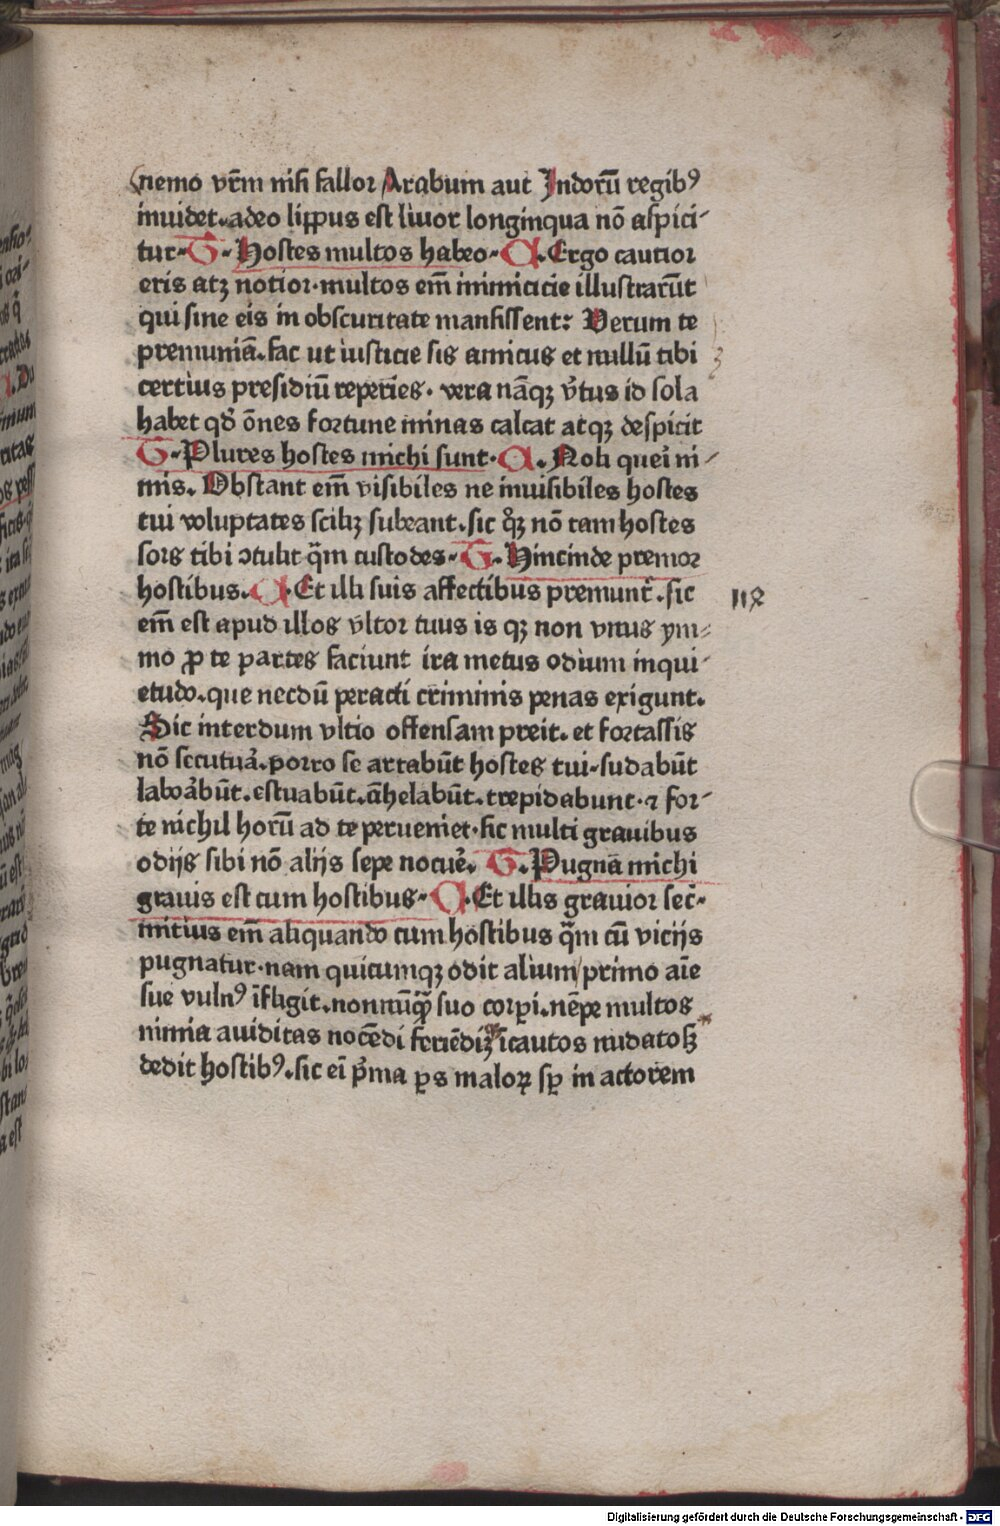 nemo vr̄m nisi fallor Arabum aut Indorū regibꝰ
inuidet. adeo lippus est liuor longinqua nō aspici-
tur. G. Hostes multos habeo. A. Ergo cautior
eris atqꝫ notior. multos em̄ inimicicie illustrarūt
qui sine eis in obscuritate mansissent: Verum te
premuniā. fac ut iusticie sis amicus et nullū tibi
certius presidiū reperies. vera nāqꝫ v̓tus id sola
habet qd̓ ōnes fortune minas calcat atqꝫ despicit
G. Plures hostes michi sunt. A. Noli queri ni-
mis. Obstant em̄ visibiles ne inuisibiles hostes
tui voluptates scilꝫ subeant. sic qͣꝫ nō tam hostes
sors tibi ꝯtulit q̄m custodes. G. Hincinde premor
hostibus. A. Et illi suis affectibus premunt᷑. sic
em̄ est apud illos vltor tuus is qꝫ non vnus ym-
mo ꝓ te partes faciunt ira metus odium inqui-
etudo. que necdū peracti criminis penas exigunt.
Sic interdum vltio offensam preit. et fortassis
nō secutuͣ. porro se artabūt hostes tui. sudabūt
laboͣbūt. estuabūt. āhelabūt. trepidabunt. ⁊ for-
te nichil horū ad te perueniet. sic multi grauibus
odijs sibi nō alijs sepe nocue᷑. G. Pugna michi
grauis est cum hostibus. A. Et illis grauior sec̄.
mitius em̄ aliquando cum hostibus q̄m cū vicijs
pugnatur. nam quicumqꝫ odit alium primo aīe
sue vulnꝰ īfligit. nonnūqͣꝫ suo corꝑi. nēpe multos
nimia auiditas nocēdi feriēdiqꝫ īcautos nudatosqꝫ
dedit hostibꝰ. sic ei p̓ma ꝑs maloꝝ sꝑ in actorem
Digitalisierung gefördert durch die Deutsche Forschungsgemeinschaft - DFG